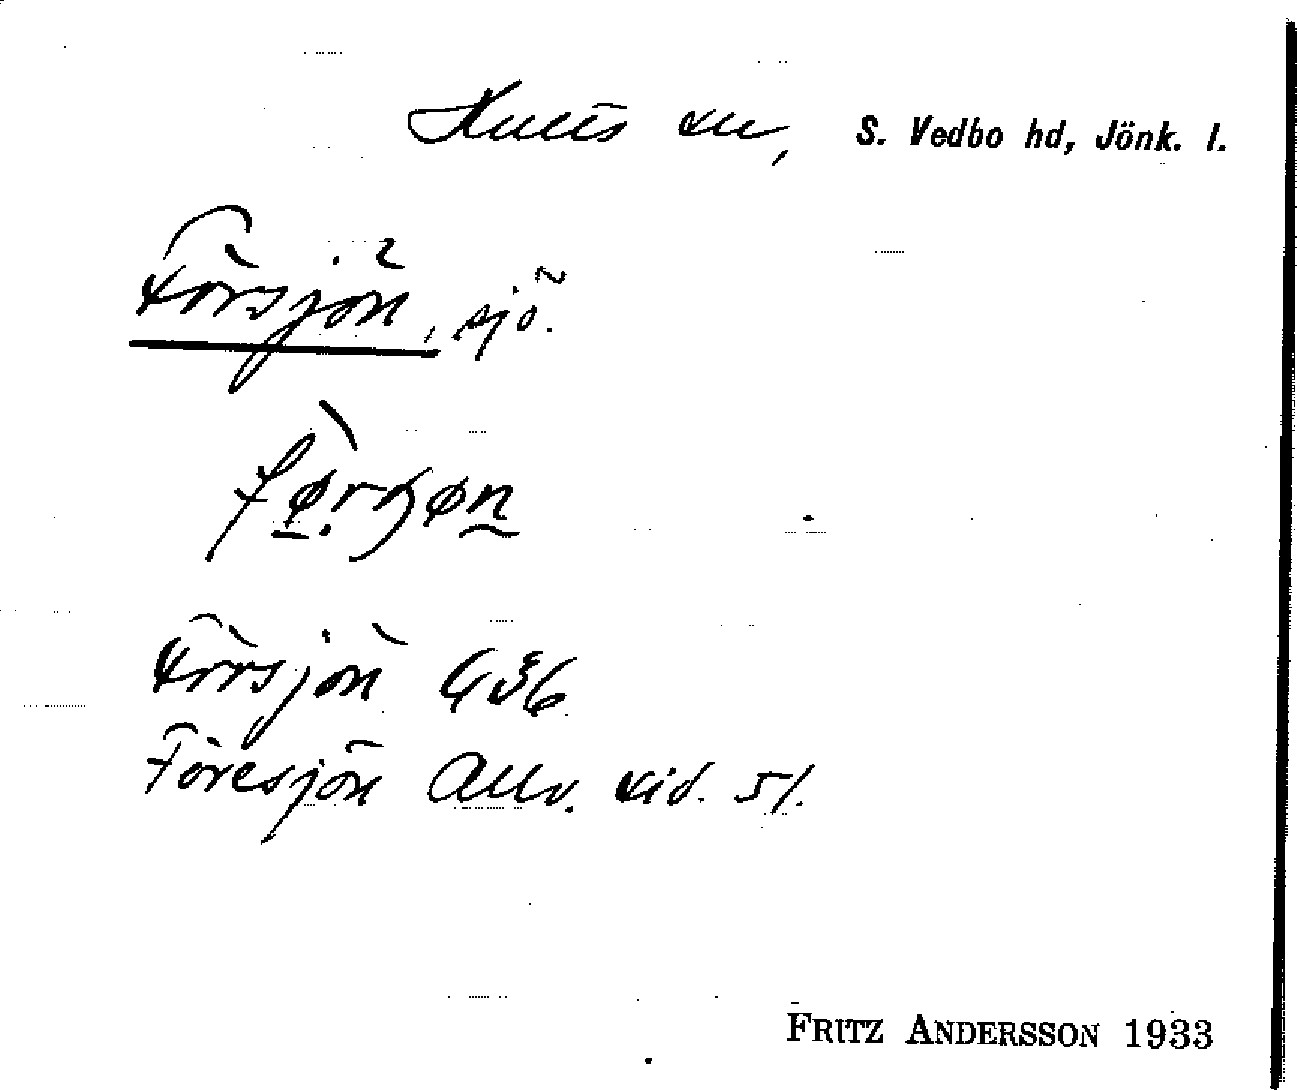 Hults sn, S. Vedbo hd, Jönk. l.
Försjön, sjö.
Försjön G 36
Föresjön Allv. vid. 51.
FRITZ ANDERSSON 1933